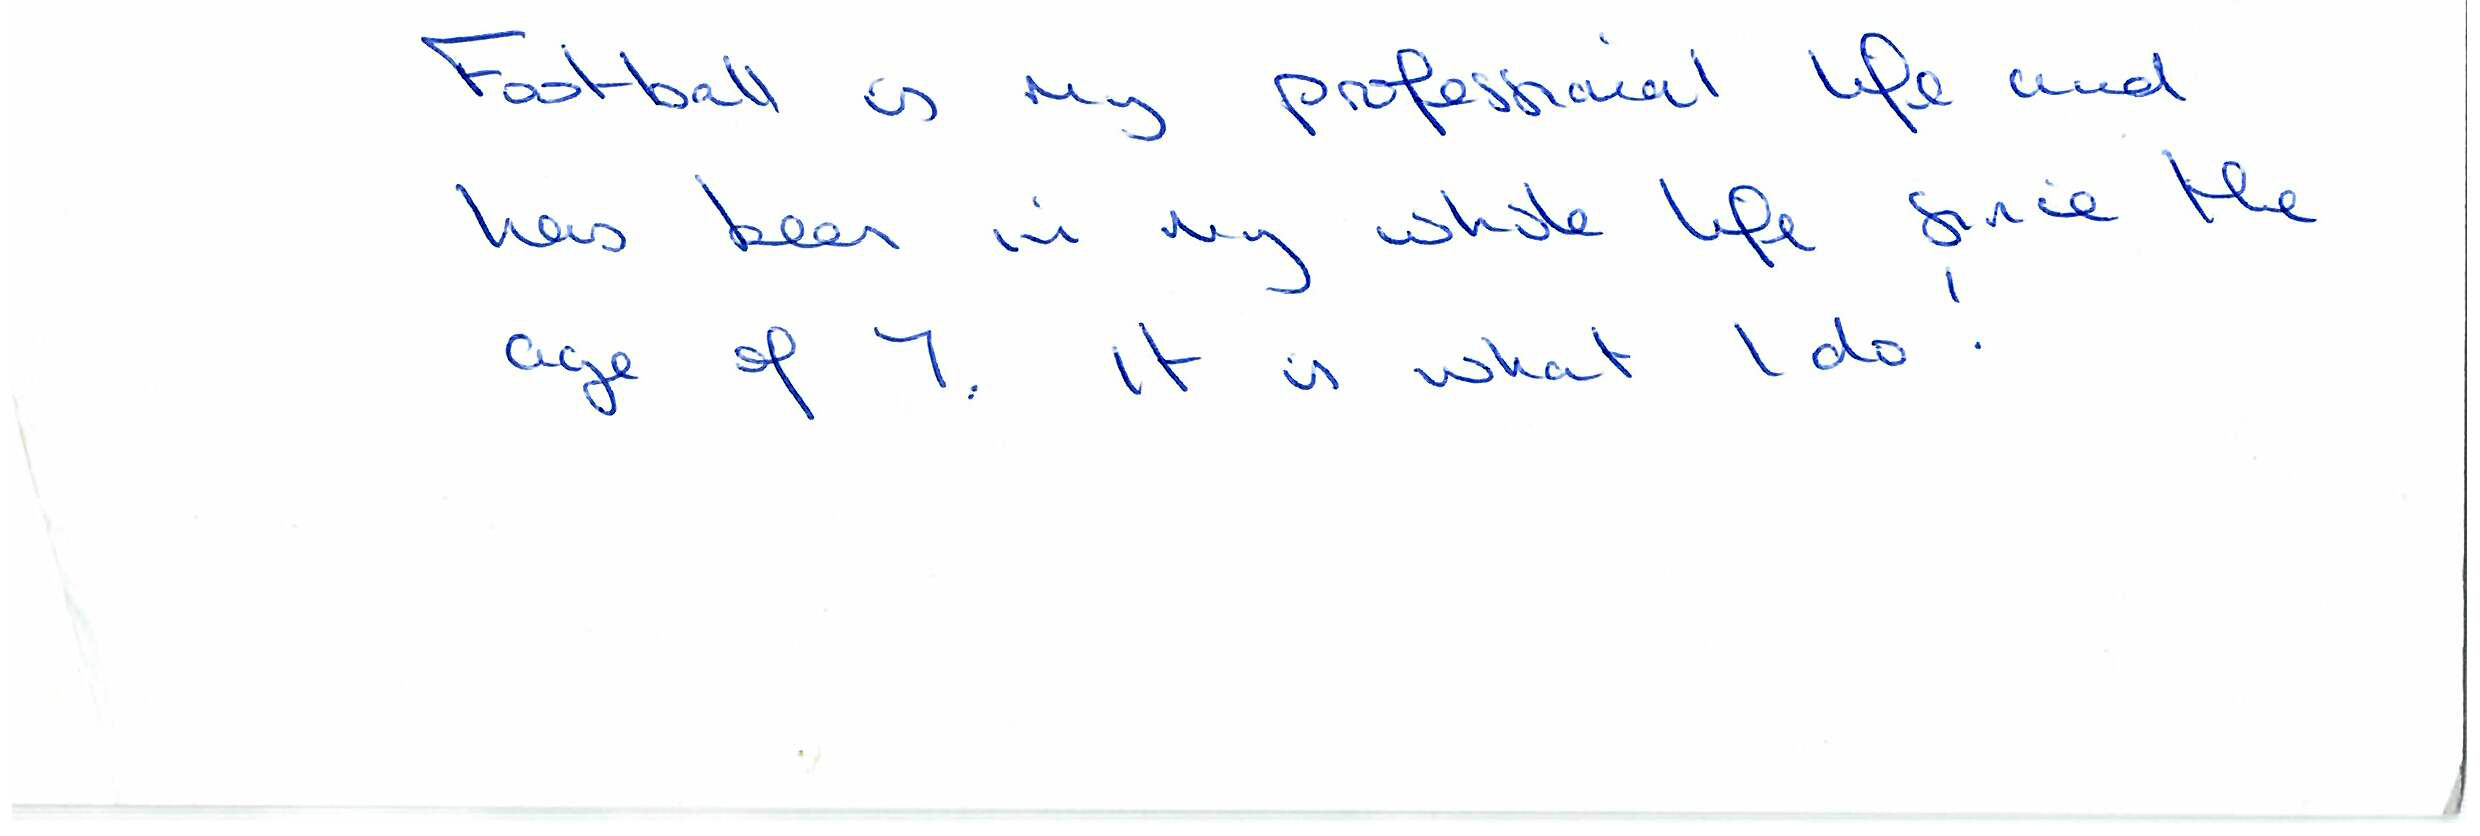 Football is my professional life and
has been in my whole life since the
age of 7. It is what I do!